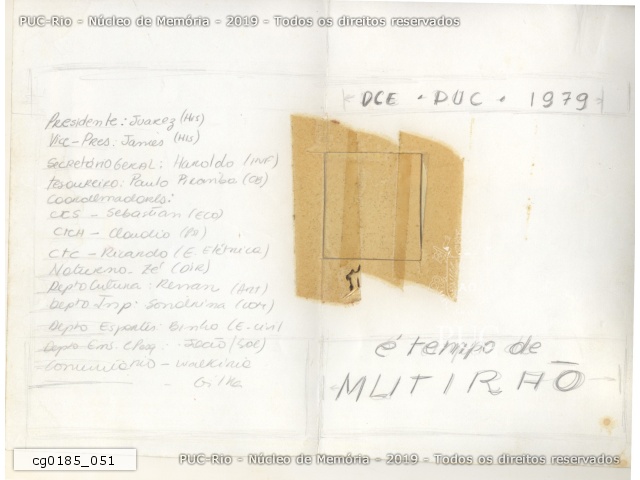 PUC-Rio - Núcleo de Memória - 2019 - Todos os direitos reservados
DCE • PUC • 1979
Presidente: Juarez (His)
Vice-Pres: James (His)
Secretário Geral: Haroldo (INF)
Tesoureiro: Paulo Piramba (CB)
Coordenadores:
CCS - Sebastian (ECO)
CTCH - Claudio
CTC - Ricardo (E. Elétrica)
Noturno - Zé (DIR)
Depto Cultura: Renan (Arts)
Depto Imp: Sandrinha (COM)
Depto Esportes: Binho (E-civil
Depto Ens. e Pesq. - João (SOC)
Comunitário - Walkiria
- Gilka
é tempo de
MUTIRÃO
cg0185_051
PUC-Rio - Núcleo de Memória - 2019 - Todos os direitos reservados